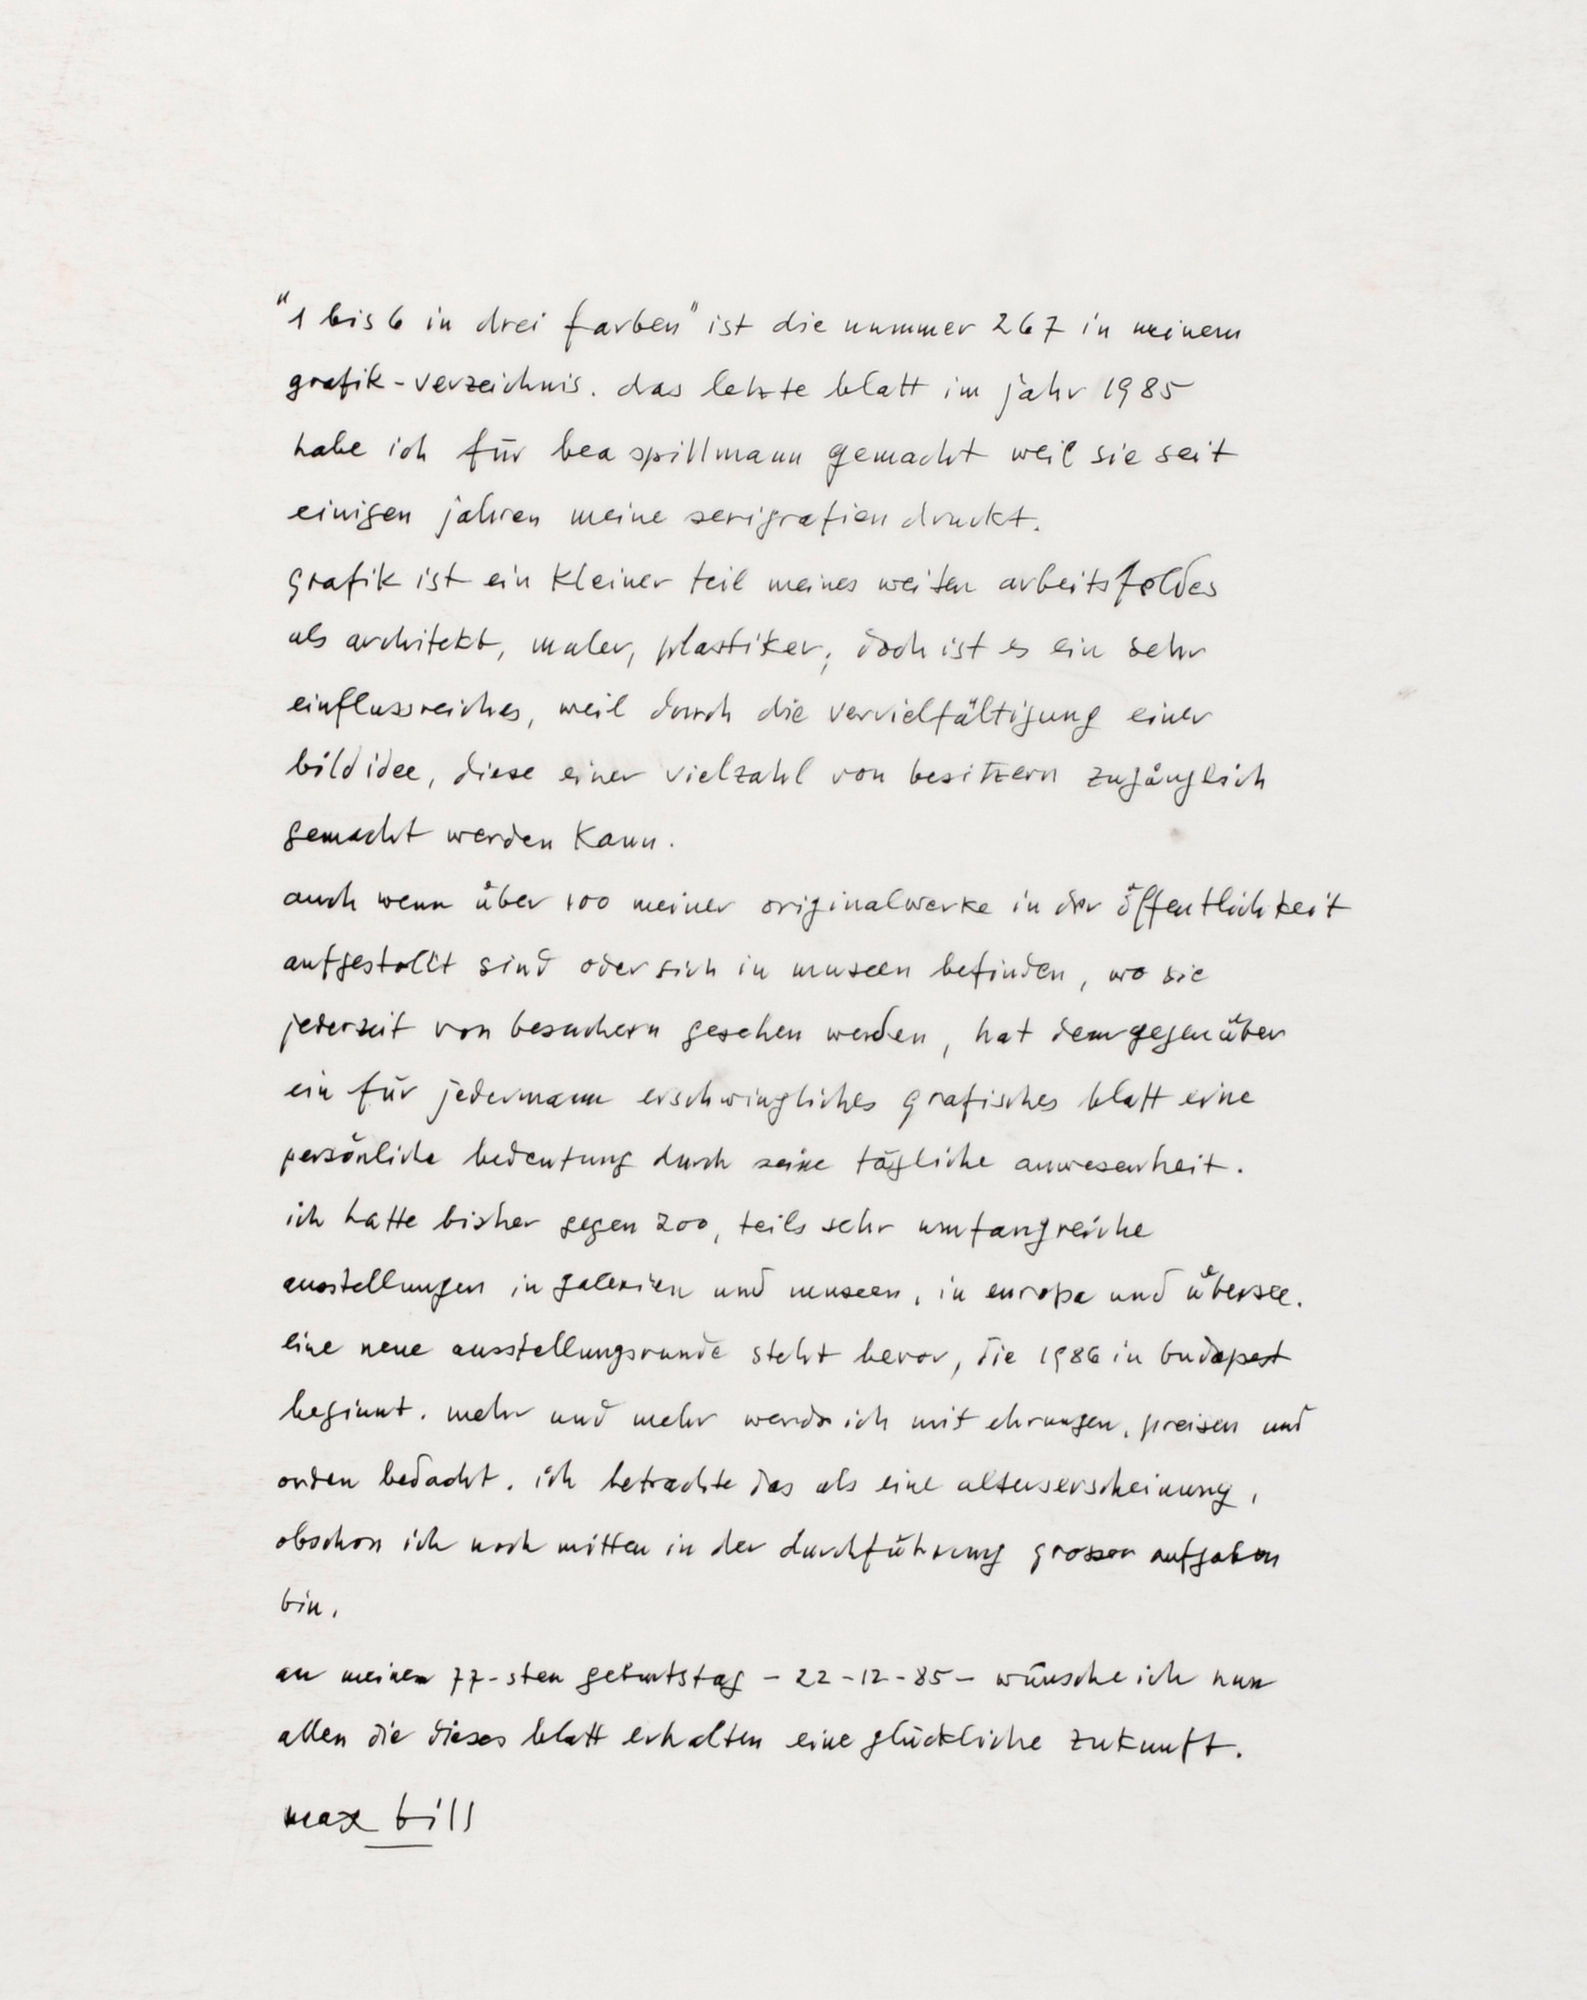 "1 bis 6 in drei farben" ist die nummer 267 in meinem
grafik-verzeichnis. das letzte blatt im jahr 1985
habe ich für bea spillmann gemacht weil sie seit
einigen jahren meine serigrafien druckt.
grafik ist ein kleiner teil meines weiten arbeitsfeldes
als architekt, maler, plastiker; doch ist es ein sehr
einflussreiches, weil durch die vervielfältigung einer
bildidee, diese einer vielzahl von besitzern zugänglich
gemacht werden kann.
auch wenn über 100 meiner originalwerke in der öffentlichkeit
aufgestellt sind oder sich in museen befinden, wo sie
jederzeit von besuchern gesehen werden, hat demgegenüber
ein für jedermann erschwingliches grafisches blatt eine
persönliche bedeutung durch seine tägliche anwesenheit.
ich hatte bisher gegen 200, teils sehr umfangreiche
ausstellungen in galerien und museen, in europa und übersee.
eine neue ausstellungsrunde steht bevor, die 1986 in budapest
beginnt. mehr und mehr werde ich mit ehrungen, preisen und
orden bedacht. ich betrachte das als eine alterserscheinung,
obschon ich noch mitten in der durchführung grosser aufgaben
bin.
an meinem 77-sten geburtstag - 22-12-85 - wünsche ich nun
allen die dieses blatt erhalten eine glückliche zukunft.
max bill